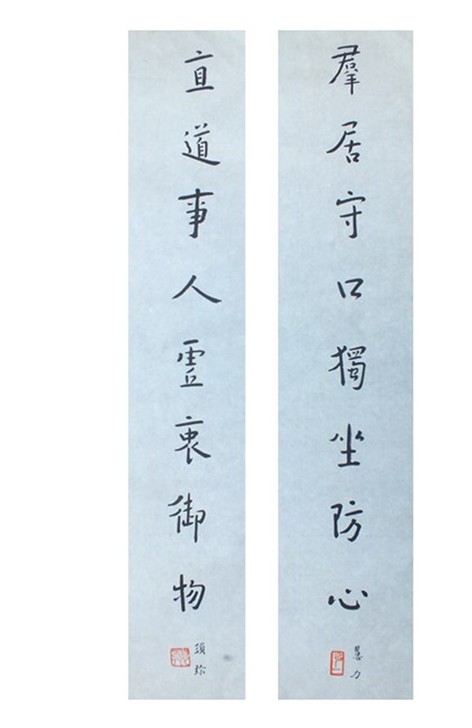 羣居守口獨坐防心
慧力
直道事人虛衷御物
須彌